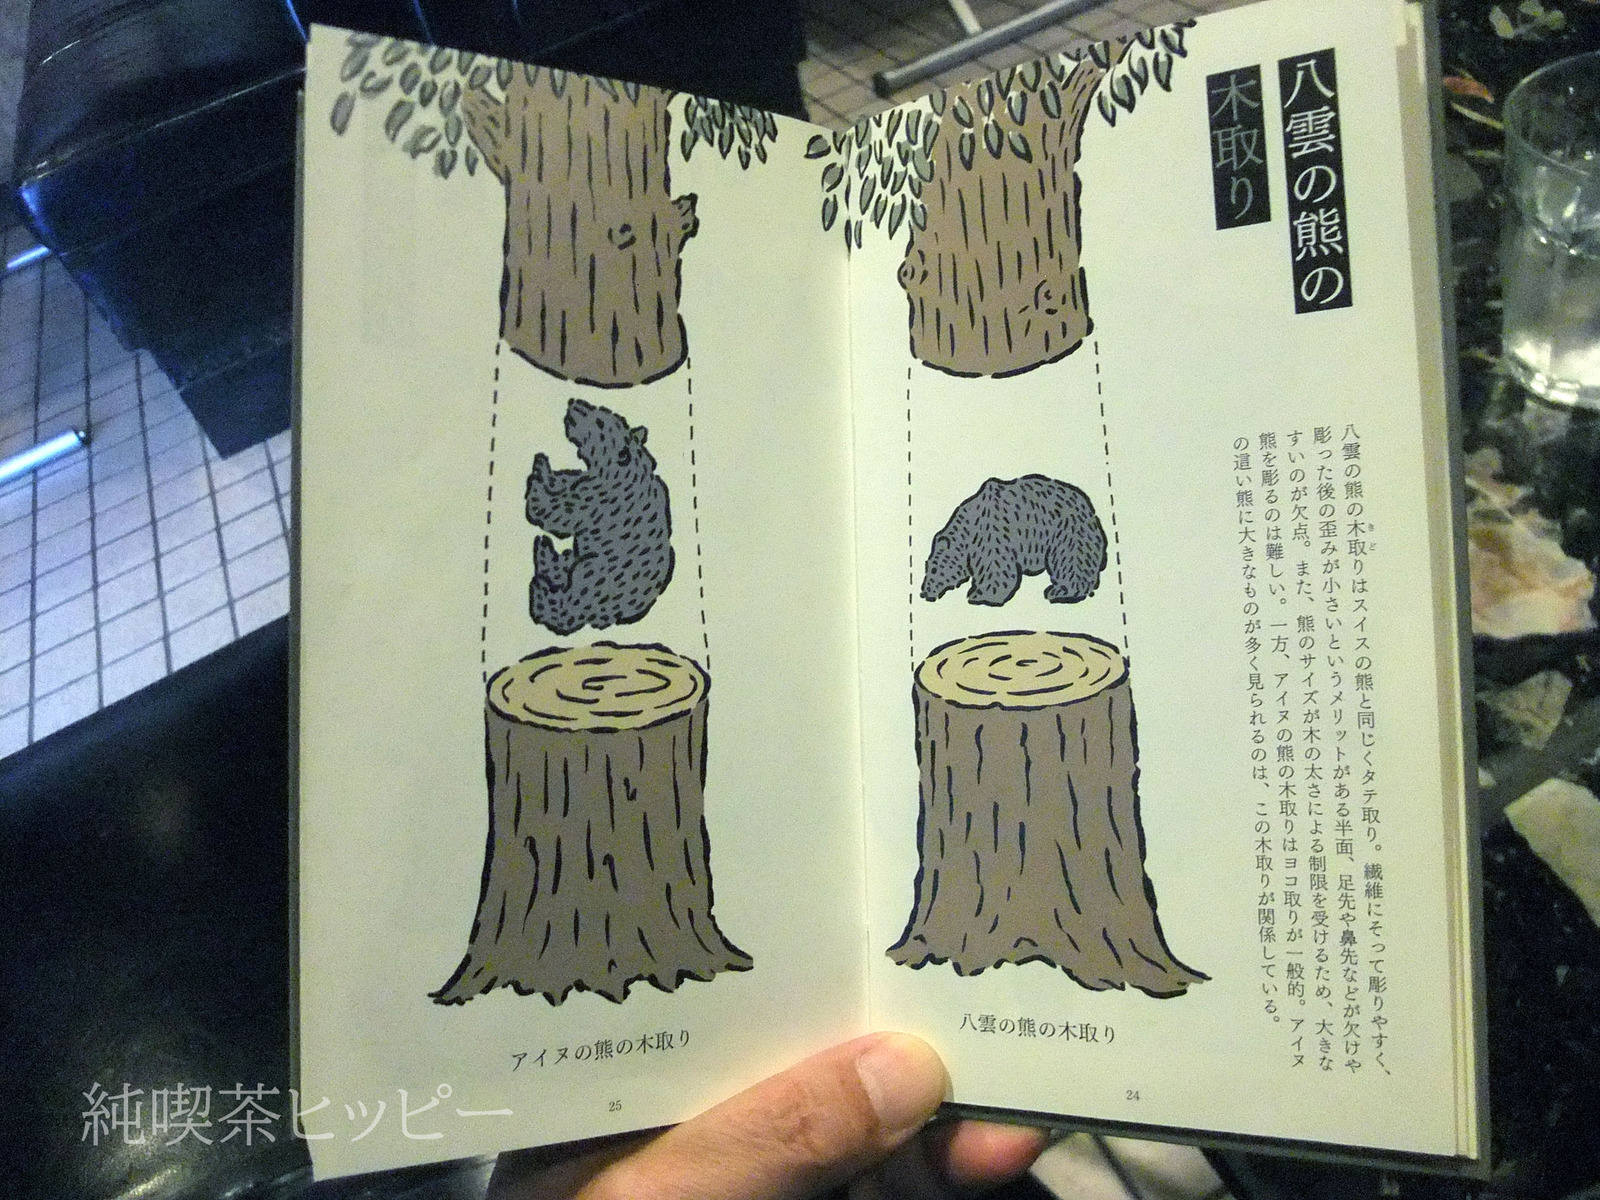 八雲の熊の
木取り
八雲の熊の木取りはスイスの熊と同じくタテ取り。繊維にそって彫りやすく、
彫った後の歪みが小さいというメリットがある半面、足先や鼻先などが欠けや
すいのが欠点。また、熊のサイズが木の太さによる制限を受けるため、大きな
熊を彫るのは難しい。一方、アイヌの熊の木取りはヨコ取りが一般的。アイヌ
の這い熊に大きなものが多く見られるのは、この木取りが関係している。
きど
八雲の熊の木取り
24
アイヌの熊の木取り
25
純喫茶ヒッピー